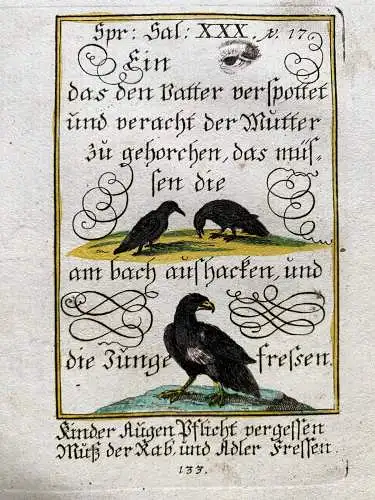 Spr: Sal: XXX. v. 17.
Ein
das den Vatter verspottet
und veracht der Mutter
zu gehorchen, das müs-
sen die
am bach aushacken, und
die Junge fressen.
Kinder Augen Pflicht vergessen
Muß der Rab und Adler Fressen
133.